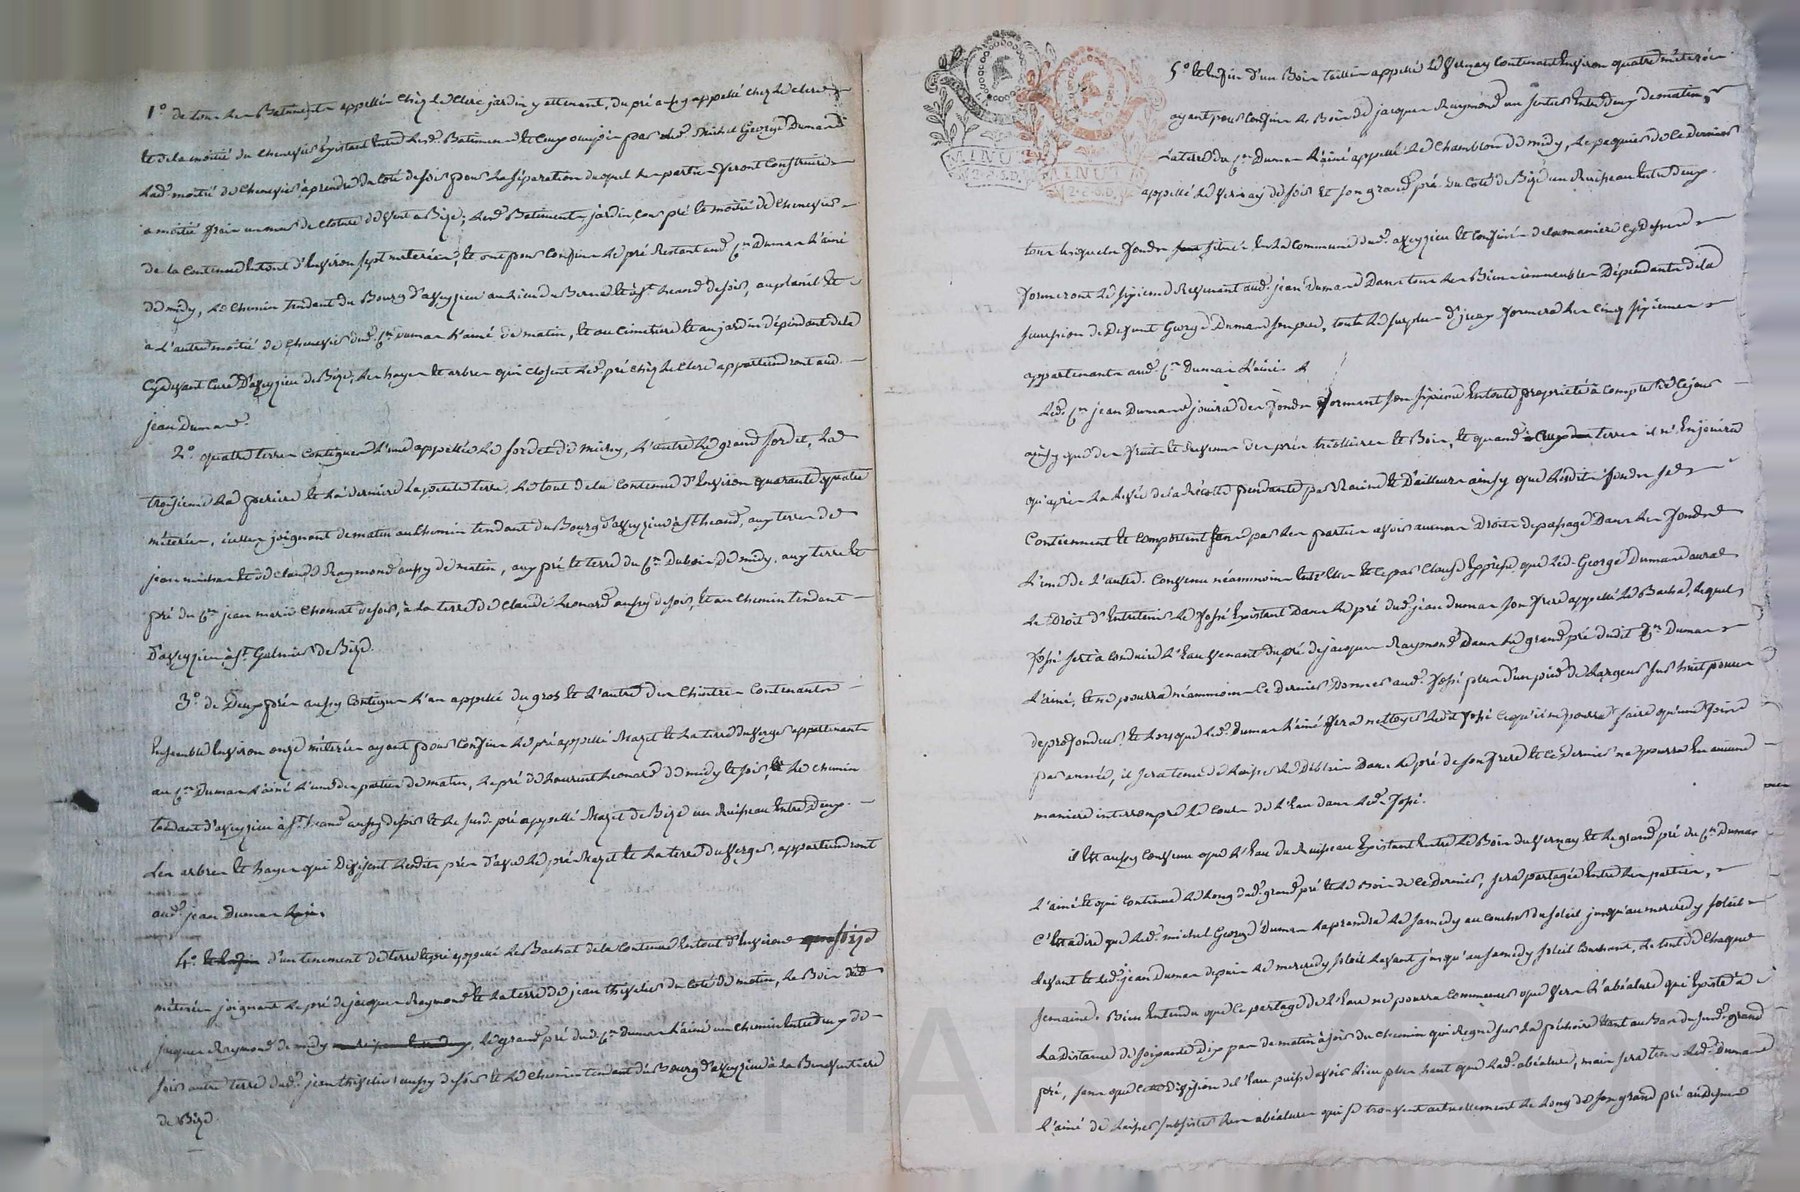 1.° de tous les Batiments appellés chez Le Clerc jardin y attenant, du pré aussy appellé chez Le clerc
et de la moitié du chenevier Existant Entre lesd. Batiments et ceux occupés par led. Michel George Dumas
lad. moitié de chenevier à prendre du coté de soir pour la separation duquel les parties feront construire
a moitié frais un mur de cloture de vent a Bize; lesd. Batiments, jardin, pré et moitié de chenevier
de la contenue Entout d'Environ sept meterées, et ont pour confins le pré Restant aud. C.en Dumas L'ainé
de midy, le chemin tendant du Bourg d'aveyzieu au lieu du Bernet et à S.t heand de soir, au placit et
à l'autre moitié de chenevier dud. C.en Dumas L'ainé de matin, et au cimetiere et au jardin dépendant de la
cydevant Cure d'aveyzieu de Bize, les hayes et arbres qui closent led. pré chez Le clerc appartiendront aud.
jean Dumas.
2.° quatre terres contigues L'une appellée Le sordet de midy, L'autre Le grand sordet, La
troisieme La periere et La derniere La petite terre, Le tout de la contenue d'Environ quarante quatre
méterées, icelles joignant de matin au chemin tendant du Bourg d'aveyzieu à S.t heand, aux terres de
jean et de claude Raymond aussy de matin, aux pré et terre du C.en Dubois de midy, aux terre et
pré du C.en jean marie chomat de soir, à la terre de Claude Leonard aussy de soir, et au chemin tendant
d'aveyzieu à S.t Galmier de Bize.
3.° de Deux prés aussy contigus L'un appellé du gros et L'autre des chintres contenants
Ensemble Environ onze méterées ayant pour confins Le pré appellé Mazet et La terre du verger appartenant
au C.en Dumas L'ainé L'une des parties de matin, Le pré de Laurent Leonard de midy et soir, Le chemin
tendant d'aveyzieu à S.t heand aussy de soir et Le susd. pré appellé Mazet de Bize un Ruisseau Entre deux.
Les arbres et hayes qui divisent lesdits prés d'avec Le pré Mazet et La terre du verger, appartiendront
aud. jean Dumas
4.° d'un tenement de terre et pré appellé Les Bachat de la contenue Entout d'Environ seize
méterées joignant Le pré de jacques Raymond et La terre de jean thivelier du coté de matin, Le Bois dud.
jacques Raymond de midy, Le grand pré dud. C.en Dumas L'ainé un chemin Entre deux de
soir autre terre dud. jean thivelier aussy de soir et Le chemin tendant du Bourg d'aveyzieu à La
de Bize.
MINUTE
2.C.5.D.
MINUTE
2.C.5.D.
5.° Et Enfin d'un Bois taillis appellé Le Vernay contenant Environ quatre méterées
ayant pour confins Le Bois de jacques Raymond un sentier Entre deux de matin,
La terre du C.en Dumas L'ainé appellée Le Chamblon de midy, Le paquier de ce dernier
appellé Le Vernay de soir Et son grand pré du coté de Bize un Ruisseau Entre deux.
tous lesquels fonds situés En La commune dud. aveyzieu et confinés de la maniere cy dessus
formeront Le sixieme Revenant aud. jean Dumas Dans tous Les Biens immeubles Dépendants de la
succession de Defunt George Dumas son pere, tout Le surplus d'iceux formera Les cinq sixiemes
appartenants aud. C.en Dumas L'ainé.
Led. C.en jean Dumas jouira des fonds formant son sixieme En toute propriété à compter de ce jour
ainsy que des fruits et Revenus des prés et Bois, et quand aux terres il n'En jouira
qu'après La Levée de la Récolte pendante par Racine et D'ailleurs ainsy que lesdits fonds se
contiennent et comportent sans par Les parties avoir aucuns Droits de passage Dans Les fonds
L'une de L'autre. Convenu néammoins Entr'Elles et ce par clause Expresse, que led. George Dumas aura
Le Droit d'Entretenir Le fossé Existant Dans Le pré dud. jean Dumas son frere appellé Les Bachat, lequel
fossé sert à conduire L'Eau venant du pré de jacques Raymond Dans Le grand pré dudit C.en Dumas
L'ainé, et ne pourra néammoins ce dernier Donner aud. fossé plus d'un pied de Largeur sur huit pouces
de profondeur, et Lorsque led. Dumas L'ainé fera nettoyer ledit fossé ce qu'il ne pourra faire qu'une fois
par année, il sera tenu de Laisser Le Deblais Dans Le pré de son frere et ce dernier ne pourra En aucune
maniere interrompre Le cours de L'Eau dans led. fossé.
il Est aussy convenu que L'Eau du Ruisseau Existant Entre Le Bois du Vernay et Le grand pré du C.en Dumas
L'ainé et qui continue Le Long dud. grand pré et Le Bois de ce Dernier, sera partagée Entre Les parties,
C'Est a dire que led. michel George Dumas La prendra Le samedy au coucher du soleil jusqu'au mercredy soleil
Levant et led. jean Dumas depuis Le mercredy soleil Levant jusqu'au samedy soleil couchant, Le tout de chaque
semaine. Bien Entendu que ce partage de L'Eau ne pourra commencer que vers L'abéalure qui Existe à
La Distance de soixante dix pas de matin à soir du chemin qui Regne sur La étant au Bas du susd. grand
pré, sans que cette division de L'Eau puisse avoir Lieu plus haut que lad. abéalure, mais sera tenu led. Dumas
L'ainé de Laisser subsister Les abéalures qui se trouvent actuellement Le Long de son grand pré au dessus